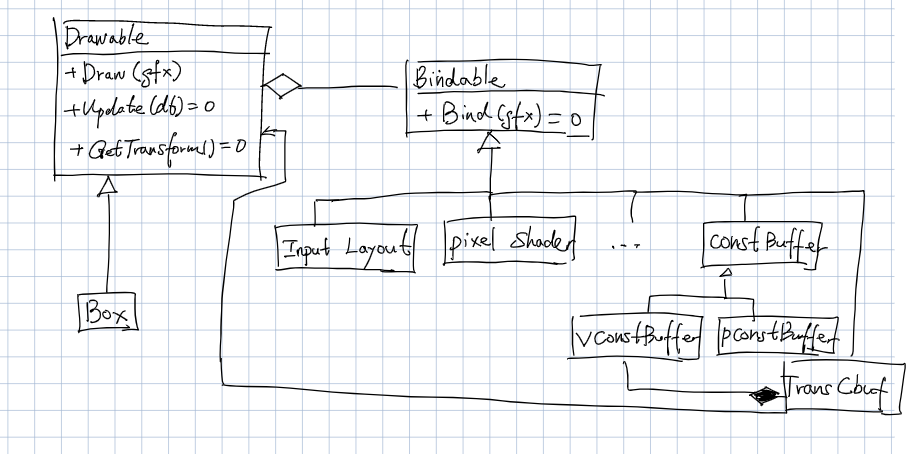 Drawable
+ Draw (gfx)
+ Update (dt) = 0
+ GetTransform() = 0
Bindable
+ Bind (gfx) = 0
Input Layout
pixel Shader
...
const Buffer
Box
VconstBuffer
pconstBuffer
Trans Cbuf